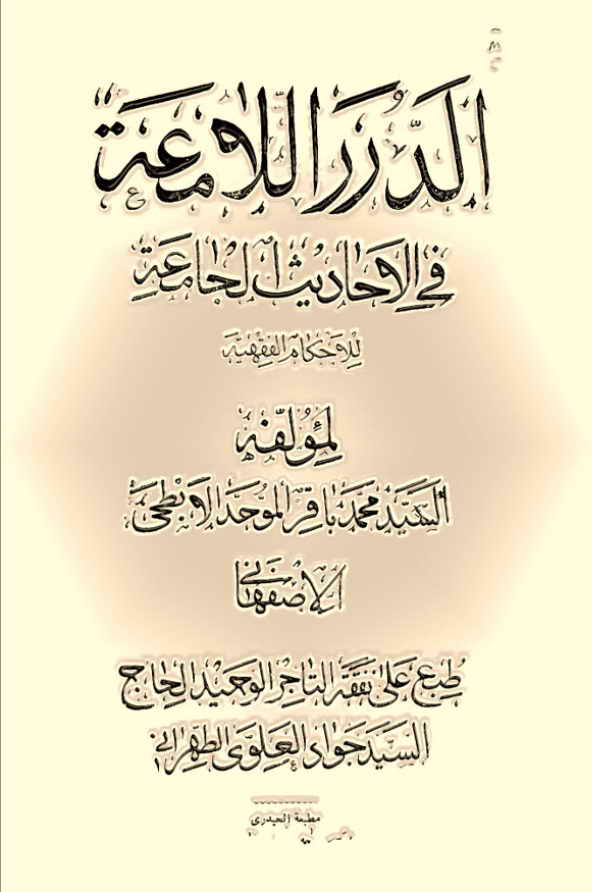 الدُّرَرُ اللّامِعَة
فِي الأَحَادِيثِ الجَامِعَةِ
لِلأَحْكَامِ الفِقْهِيَّة
لِمُؤَلِّفِهِ
السَّيِّد مُحَمَّد بَاقِر المُوَحِّد الأَبْطَحِي
الإِصْفَهَانِي
طُبِعَ عَلَى نَفَقَةِ التَاجِرِ الوَحِيدِ الحَاج
السَّيِّد جَوَاد العَلَوِي الطَّهْرَانِي
مطبعة الحيدري